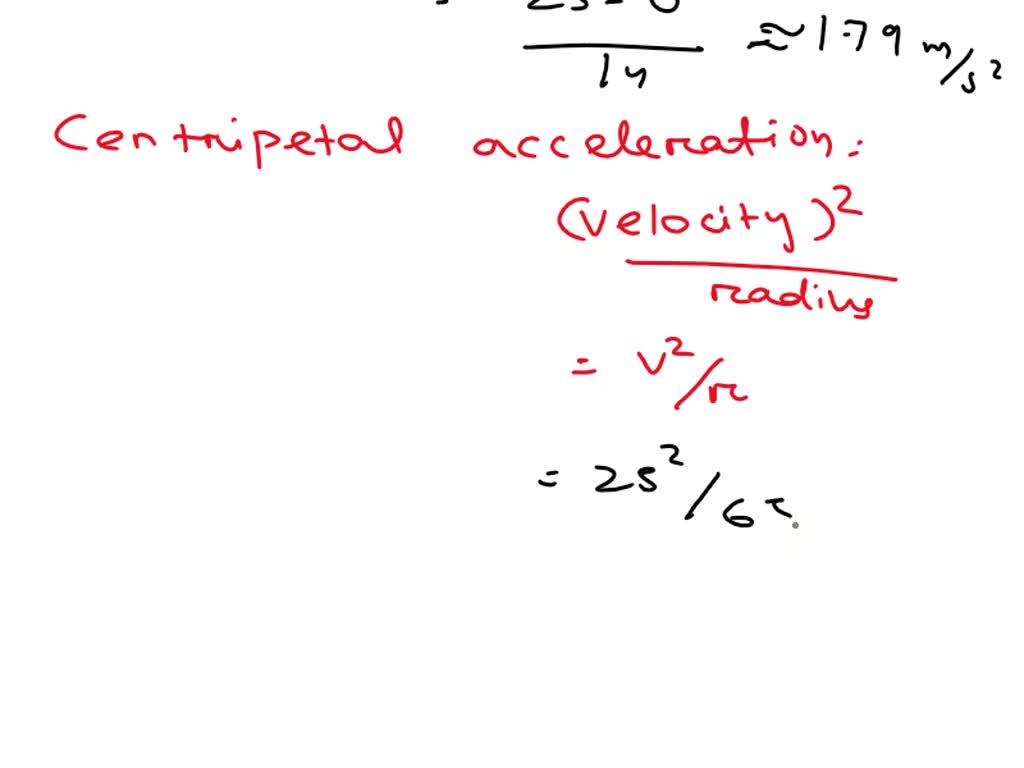 = 25-0
14 ≈ 1.79 m/s²
Centripetal acceleration:
(velocity)²
radius
= v²/r
= 25²/6